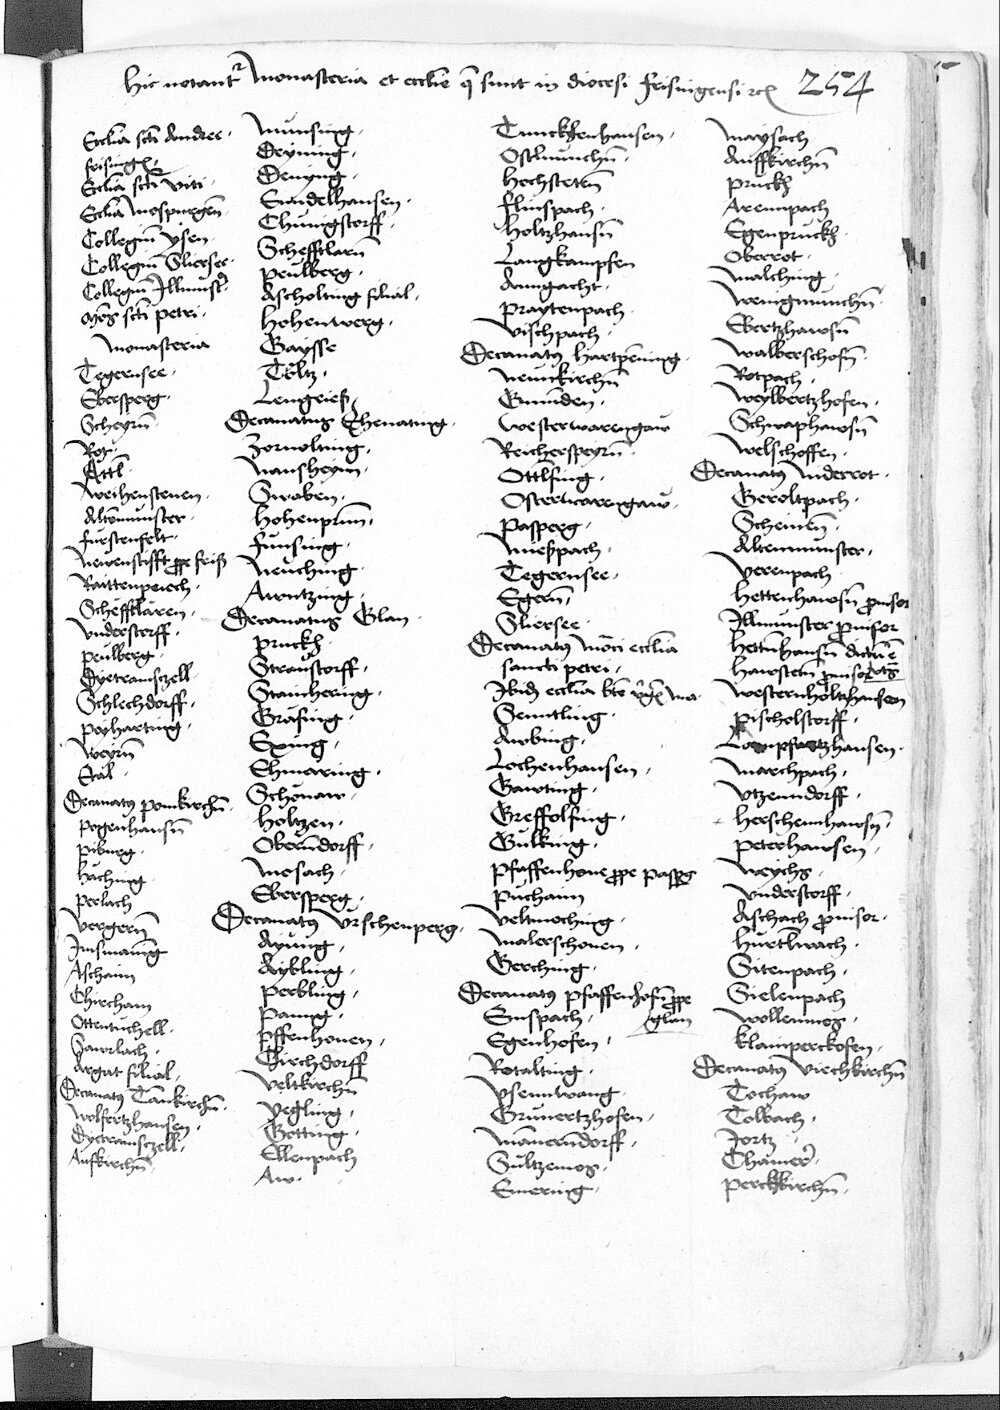 Hic notantr Monasteria et ecclie q sunt in diocesi frisingensi rc 254
Ecclia scti Andree
frising
Ecclia scti Viti
Ecclia Mospurgen
Collegiu ysen
Collegiu Sliersee
Collegiu Illmunst
scti petri
Monasteria
Tegernsee
Ebersperg
Scheyrn
Rot
Attl
Weihensteuen
Altenmunster
furstenfelt
Newenstifft prope freis
Raittenpuech
Schefftlaren
Vnderstorff
peulberg
Dyetramszell
Schlechdorff
peyharting
Weyrn
Decanatus ponkirchn
pogenhausn
piburg
haching
perlach
Vergern
Jmsmaning
Aschaim
Chircham
Ottentuchell
Saurlach
Argat filial
Decanatus Tankirchn
Wolfertzhausen
Dyetramszell
Aufkirchn
Munsing
Deyning
Dening
Sindelhausen
Chunigstorff
Schefftlarn
peulberg
Ascholting filial
Hohenwerg
Gaysse
Töltz
Lengrieß
Decanatus Chenating
Zornolting
Nansheym
Swaben
Hohenprun
funsing
Neuching
Awntzing
Decanatus Glan
prucks
Straustorff
Stanchering
Grafing
Exing
Ehmaring
Schönaw
Holtzen
Oberndorff
Mosach
Ebersperg
Decanatus Vrschenperg
Aying
Aybling
perbling
pang
pffenhouen
Chirchdorff
Veltkirchn
Vegling
Gotting
Ellenpach
Aw
Tunckhenhausen
Ostlmunchn
Hochstetn
flinspach
Holtzhausn
Langkampfen
Angacht
praytenpach
Vischpach
Decanatus hartpenning
Neunkirchn
Gmunden
Westerwarngaw
Reicherspeyrn
Ottlfing
Osterwarngaw
pasperg
Miespach
Tegernsee
Egern
Sliersee
Decanatus Monaci ecclia
sancti petri
Ibide ecclia bte
Sentling
Awbing
Lochenhausen
Gawting
Greffolfing
Gulking
pfaffenhoue prope pasperg
puchaim
Veltmoching
Malerschouen
Gerching
Decanatus pfaffenhofn prope
glan
Snspach
Egenhofen
Rotalting
Ysenwang
Grunertzhofen
Mamerndorff
Sultzemos
Emering
Maysach
Auffkirchn
prucks
Arennpach
Egenprucks
Oberrot
Malching
Wenigmunchn
Ebertzhawsn
Walberschofn
Rotpach
Weylbertzhofen
Schwaphawsn
Welschoffen
Decanatus Inderrot
Geroltpach
Scheinen
Altenmunster
Verenpach
Hettenhawsn prouisor
Illmunster prouisor
Hettnhausn
hawsteten prouisor
Westernholtzhausen
pischolstorff
Lampfertzhausen
Marchpach
Vtzenndorff
Herschenhawsn
peterhawsen
Weychs
Vnderstorff
Aschach prouisor
Hurtlwach
Sitenpach
Sielenpach
Wollenmos
klamperckofen
Decanatus Viechkirchn
Tochaw
Tolbach
Jortz
Chamer
perckkirchn